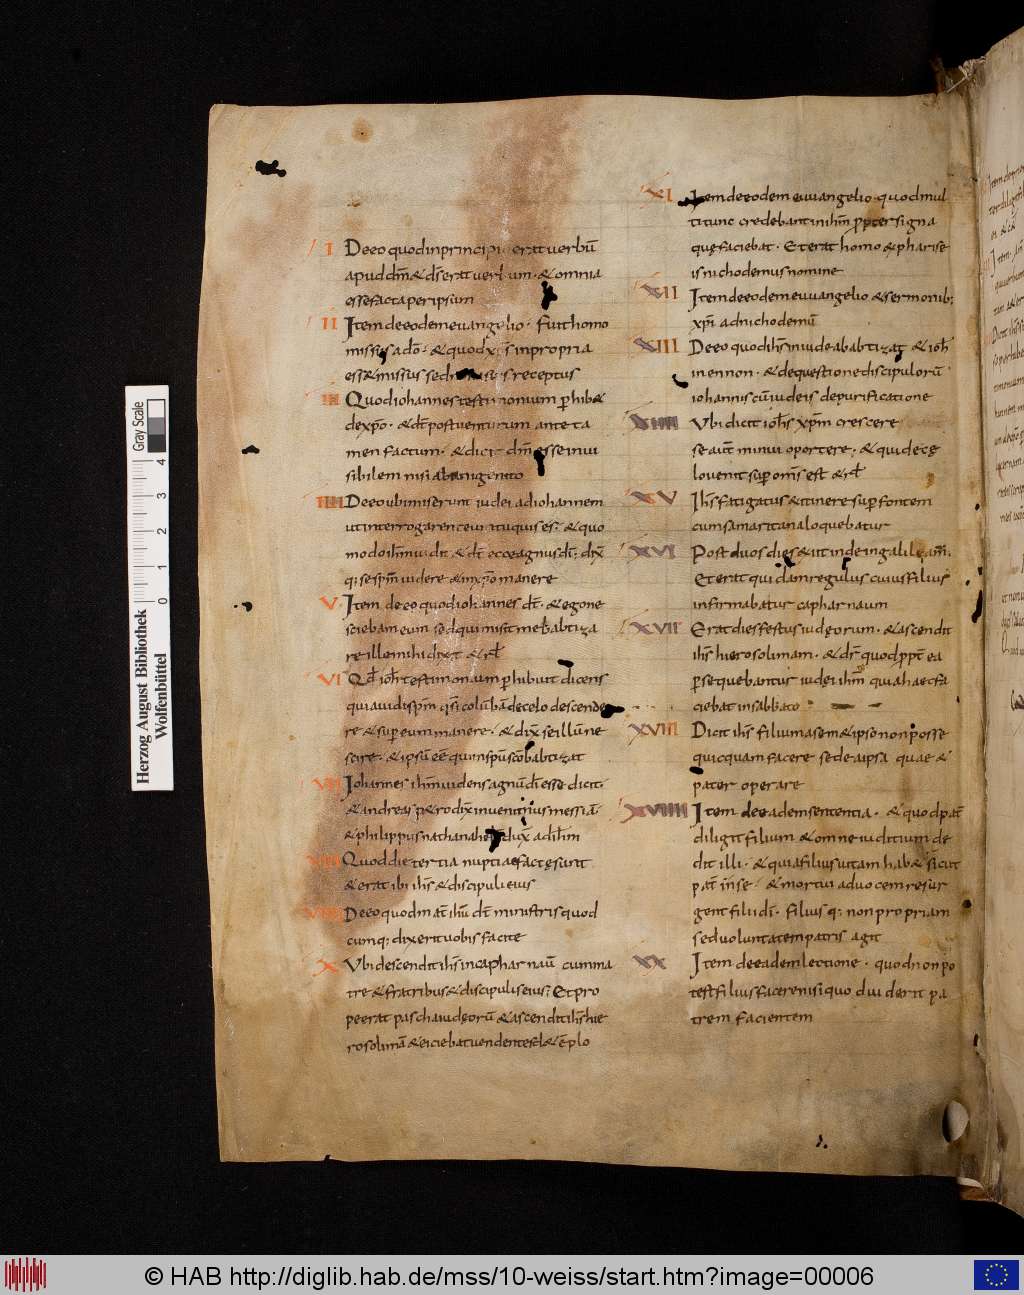 I De eo quod in principi erat uerbū
apud dm̄ & ds̄ erat uerbum · & omnia
esse facta per ipsum
II Item de eodem euangelio · fuit homo
missus a dō · & quod xp̄s in propria
esse missus sed receptus
III Quod iohannes testimonium ꝑhib&
de xp̄o · & dt̄ post uenturum ante ta
men factum · & dicit dm̄ esse inui
sibilem nisi ab unigenito
IIII De eo ubi miserunt iudei ad iohannem
ut interrogarent eum tu quis es · & quo
modo ihm̄ uidit & dt̄ ecce agnus dī · dix̄
q; se spm̄ uidere & in xp̄o manere
V Item de eo quod iohannes dt̄ · & ego ne
sciebam eum sed qui misit me babtiza
re ille mihi dixit & rł
VI Qd̄ ioh̄ testimonium ꝑhibuit dicens
quia uidi spm̄ q̄si colūbā de celo descende
re & super eum manere · & dix̄ se illū ne
scire · & ipsū eē qui in spū scō babtizat
VII Iohannes ihm̄ uidens agnū dī esse dicit ·
& andreas p&ro dix̄ inuenimus messiā
& philippus nathanahel dux̄ ad ihm̄
VIII Quod die tertia nuptiae factę sunt
& erat ibi ihs̄ & discipuli eius
VIIII De eo quod mat̄ ihū dt̄ ministris quod
cumq; dixerit uobis facite
X Vbi descendit ihs̄ in capharnaū cum ma
tre & fratribus & discipulis eius; Et pro
pe erat pascha iudęorū & ascendit ihs̄ hie
rosolimā & eiciebat uendentes & ē plo
XI Item de eodem euuangelio quod mul
ti tunc credebant in ihm̄ ꝓpter signa
quę faciebat · Et erat homo ex pharise
is nichodemus nomine
XII Item de eodem euuangelio & sermonib;
xp̄i ad nichodemū
XIII De eo quod ihs̄ in iudea babtizat & ioh̄
in ennon · & de questione discipulorū
iohannis cū iudeis de purificatione
XIIII Vbi dicit ioh̄s xp̄m crescere
se aut̄ minui oportere; & qui de ce
lo uenit suꝑ om̄s est & rł
XV Ihs̄ fatigatus & itinere super fontem
cum samaritana loquebatur
XVI Post duos dies exiit inde in galileam;
Et erat quidam regulus cuius filius
infirmabatur capharnaum
XVII Erat dies festus iudęorum · & ascendit
ihs̄ hierosolimam · & dr̄ quod ꝓpt̄ ea
ꝑsequebantur iudei ihm̄ quia haec fa
ciebat in sabbato
XVIII Dicit ihs̄ filium a sem&ipso non posse
quicquam facere sed ea ipsa quae &
pater operare
XVIIII Item de eadem sententia · & quod pat̄
diligit filium & omne iuditium de
dit illi · & quia filius uitam hab& sicut
pat̄ in se · & mortui ad uocem resur
gent filii dī · filius q; non propriam
sed uoluntatem patris agit
XX Item de eadem lectione · quod non po
test filius facere nisi quod uiderit pa
trem facientem
Herzog August Bibliothek
Wolfenbüttel
0 1 2 3 4
Gray Scale
© HAB http://diglib.hab.de/mss/10-weiss/start.htm?image=00006